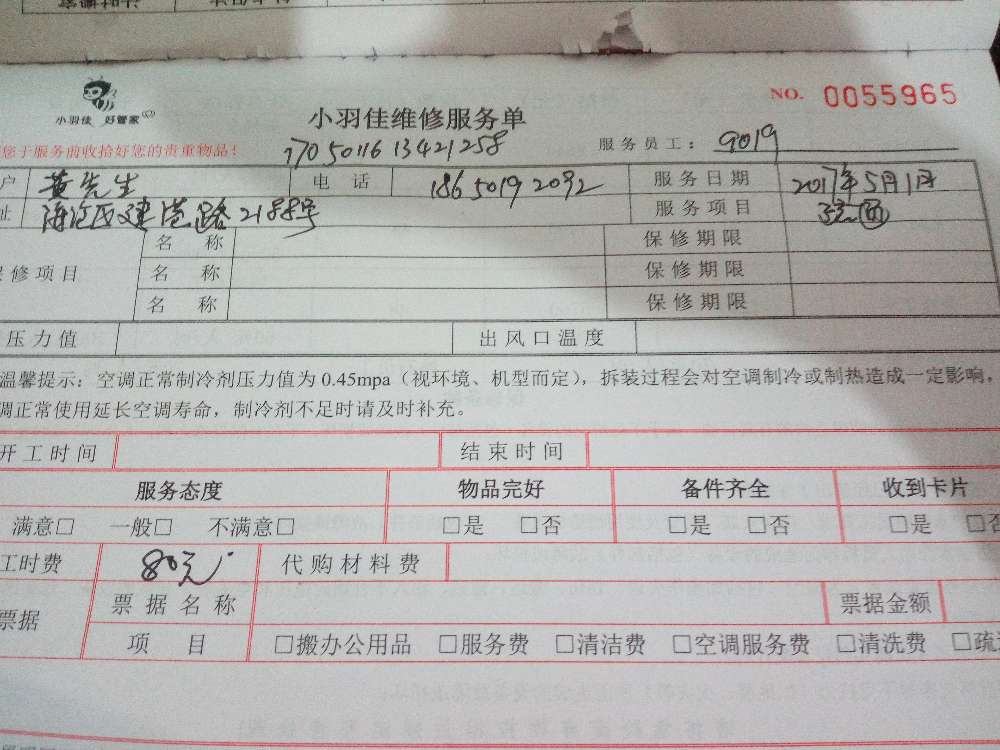 小羽佳 好管家
小羽佳维修服务单
NO. 0055965
您于服务前收拾好您的贵重物品!
1705011613421258
服务员工: 9019
户 黄先生 电话 18650192092 服务日期 2017年5月1日
址 海沧区建港路2188号 服务项目
保修项目 名称 保修期限
名称 保修期限
名称 保修期限
压力值 出风口温度
温馨提示:空调正常制冷剂压力值为0.45mpa(视环境、机型而定),拆装过程会对空调制冷或制热造成一定影响,
调正常使用延长空调寿命,制冷剂不足时请及时补充。
开工时间 结束时间
服务态度 物品完好 备件齐全 收到卡片
满意□ 一般□ 不满意□ □是 □否 □是 □否 □是 □否
工时费 80元 代购材料费
票据 票据名称 票据金额
项目 □搬办公用品 □服务费 □清洁费 □空调服务费 □清洗费 □疏